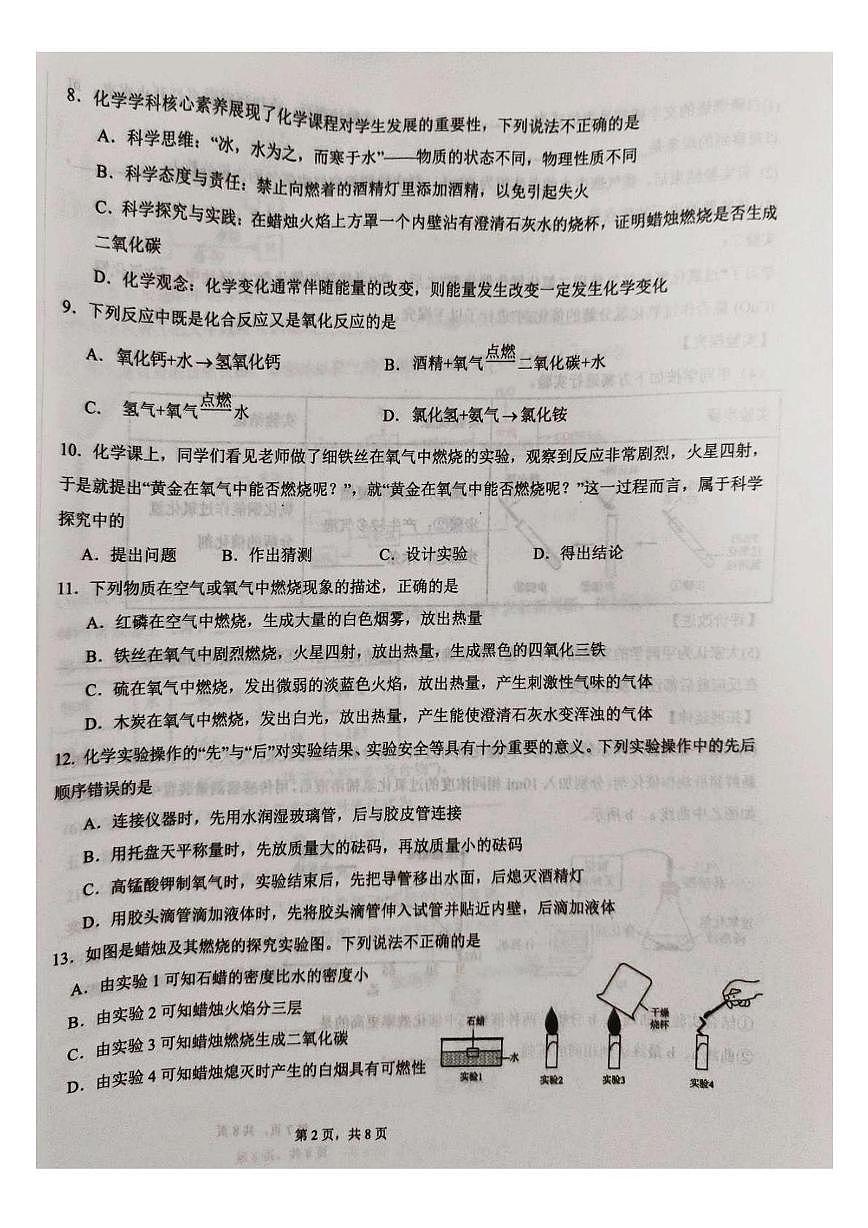 8．化学学科核心素养展现了化学课程对学生发展的重要性，下列说法不正确的是
A．科学思维：“冰，水为之，而寒于水”——物质的状态不同，物理性质不同
B．科学态度与责任：禁止向燃着的酒精灯里添加酒精，以免引起失火
C．科学探究与实践：在蜡烛火焰上方罩一个内壁沾有澄清石灰水的烧杯，证明蜡烛燃烧是否生成
二氧化碳
D．化学观念：化学变化通常伴随能量的改变，则能量发生改变一定发生化学变化
9．下列反应中既是化合反应又是氧化反应的是
A．氧化钙+水→氢氧化钙 B．酒精+氧气 点燃 二氧化碳+水
C．氢气+氧气 点燃 水 D．氯化氢+氨气→氯化铵
10．化学课上，同学们看见老师做了细铁丝在氧气中燃烧的实验，观察到反应非常剧烈，火星四射，
于是就提出“黄金在氧气中能否燃烧呢？”，就“黄金在氧气中能否燃烧呢？”这一过程而言，属于科学
探究中的
A．提出问题 B．作出猜测 C．设计实验 D．得出结论
11．下列物质在空气或氧气中燃烧现象的描述，正确的是
A．红磷在空气中燃烧，生成大量的白色烟雾，放出热量
B．铁丝在氧气中剧烈燃烧，火星四射，放出热量，生成黑色的四氧化三铁
C．硫在氧气中燃烧，发出微弱的淡蓝色火焰，放出热量，产生刺激性气味的气体
D．木炭在氧气中燃烧，发出白光，放出热量，产生能使澄清石灰水变浑浊的气体
12．化学实验操作的“先”与“后”对实验结果、实验安全等具有十分重要的意义。下列实验操作中的先后
顺序错误的是
A．连接仪器时，先用水润湿玻璃管，后与胶皮管连接
B．用托盘天平称量时，先放质量大的砝码，再放质量小的砝码
C．高锰酸钾制氧气时，实验结束后，先把导管移出水面，后熄灭酒精灯
D．用胶头滴管滴加液体时，先将胶头滴管伸入试管并贴近内壁，后滴加液体
13．如图是蜡烛及其燃烧的探究实验图。下列说法不正确的是
A．由实验1可知石蜡的密度比水的密度小
B．由实验2可知蜡烛火焰分三层
C．由实验3可知蜡烛燃烧生成二氧化碳
D．由实验4可知蜡烛熄灭时产生的白烟具有可燃性
石蜡
水
干燥
烧杯
实验1 实验2 实验3 实验4
第2页，共8页